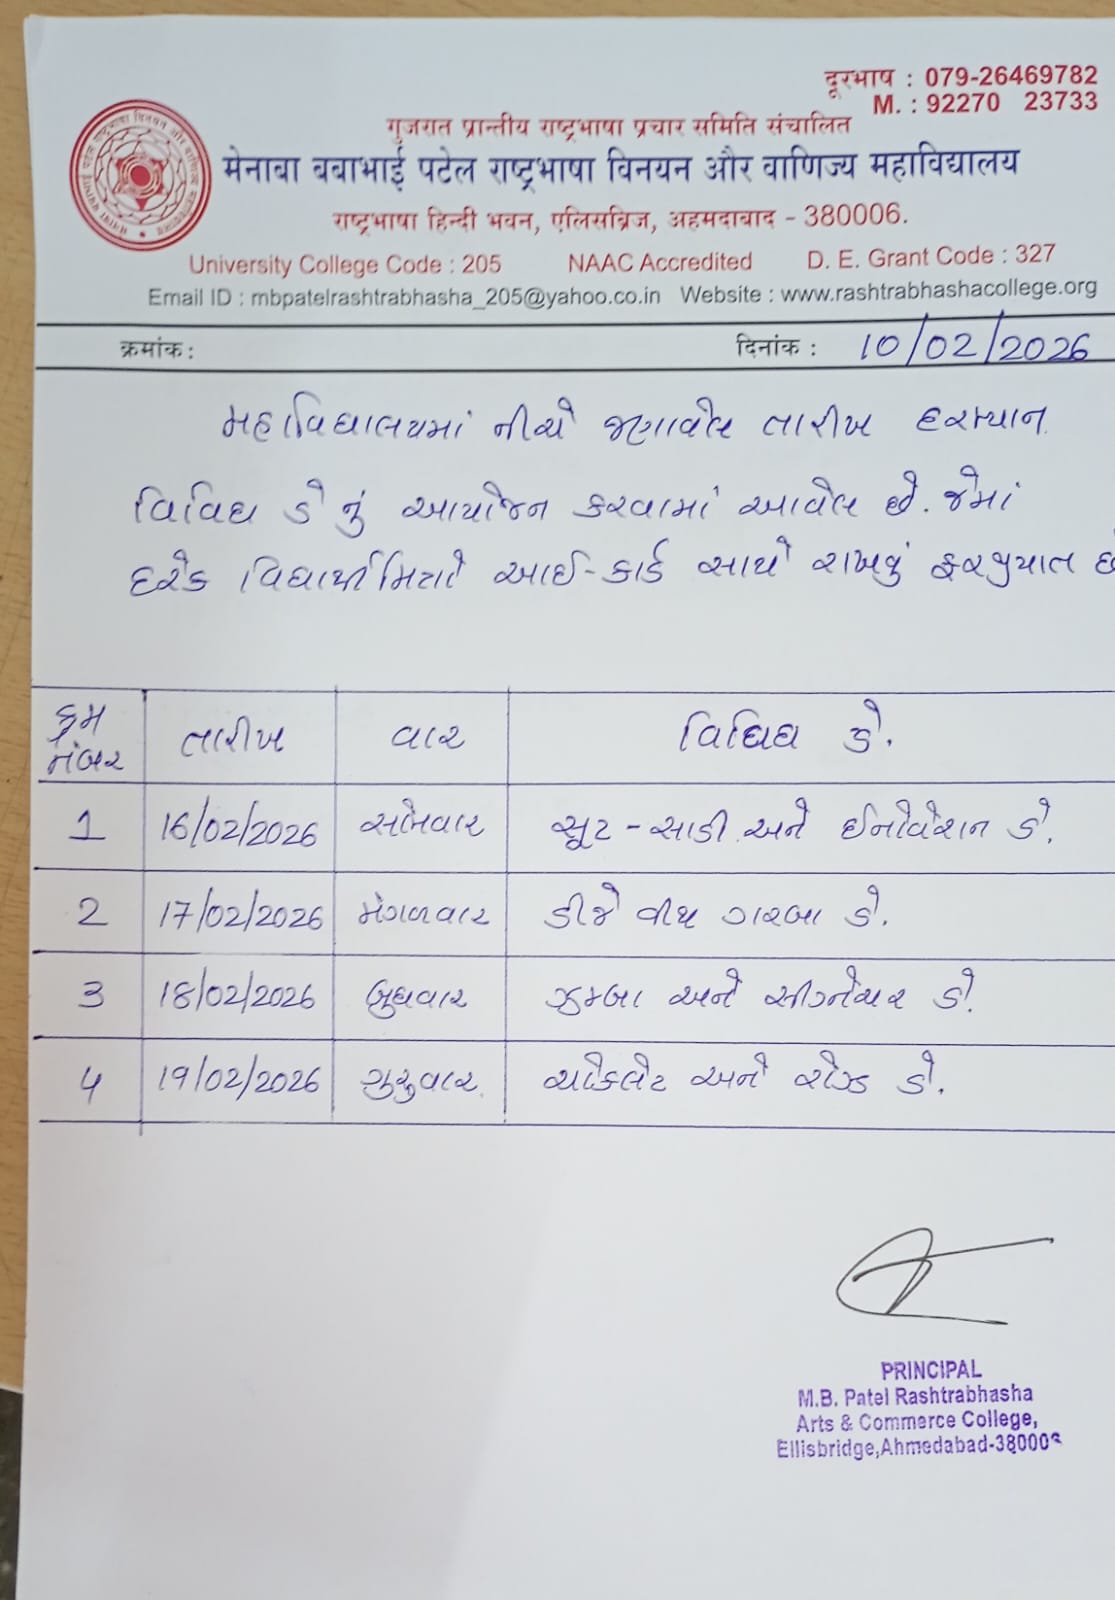 दूरभाष : 079-26469782
M. : 92270 23733
गुजरात प्रान्तीय राष्ट्रभाषा प्रचार समिति संचालित
मेनाबा बबाभाई पटेल राष्ट्रभाषा विनयन और वाणिज्य महाविद्यालय
राष्ट्रभाषा हिन्दी भवन, एलिसब्रिज, अहमदाबाद - 380006.
University College Code : 205 NAAC Accredited D. E. Grant Code : 327
Email ID : mbpatelrashtrabhasha_205@yahoo.co.in Website : www.rashtrabhashacollege.org
क्रमांक : दिनांक : 10/02/2026
મહાવિદ્યાલયમાં નીચે જણાવેલ તારીખ દરમ્યાન
વિવિધ ડે નું આયોજન કરવામાં આવેલ છે. જેમાં
દરેક વિદ્યાર્થીમિત્રો આઈ-કાર્ડ સાથે રાખવું ફરજીયાત છે
ક્રમ નંબર તારીખ વાર વિવિધ ડે.
1 16/02/2026 સોમવાર સૂટ-સાડી અને ઈનોવેશન ડે.
2 17/02/2026 મંગળવાર ડીજે વીથ ગરબા ડે.
3 18/02/2026 બુધવાર ઝુમ્બા અને સીગ્નેચર ડે.
4 19/02/2026 ગુરુવાર ચોકલેટ અને રોઝ ડે.
PRINCIPAL
M.B. Patel Rashtrabhasha
Arts & Commerce College,
Ellisbridge,Ahmedabad-380006